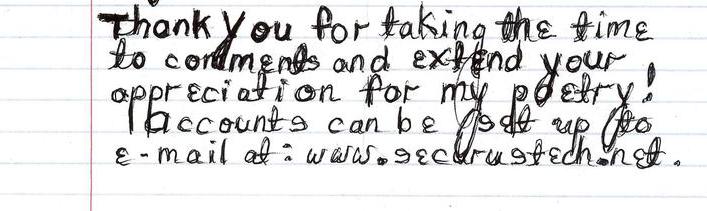 Thank you for taking the time
to comments and extend your
appreciation for my poetry!
accounts can be set up to
e-mail at: www.securustech.net.